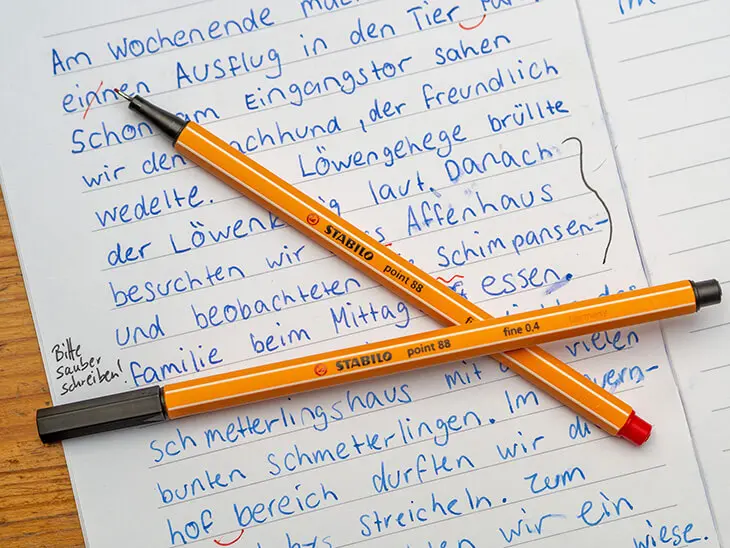 Am Wochenende
einnen Ausflug in den Tier
Schon am Eingangstor sahen
wir den , der freundlich
wedelte. Löwengehege brüllte
der laut. Danach
besuchten wir Affenhaus
und beobachteten Schimpansen-
familie beim Mittag essen.
Bitte
sauber
schreiben!
STABILO point 88
STABILO point 88 fine 0,4 Germany
Schmetterlingshaus mit vielen
bunten Schmetterlingen. Im
hof bereich durften wir
streicheln. Zum
wir ein
wiese.